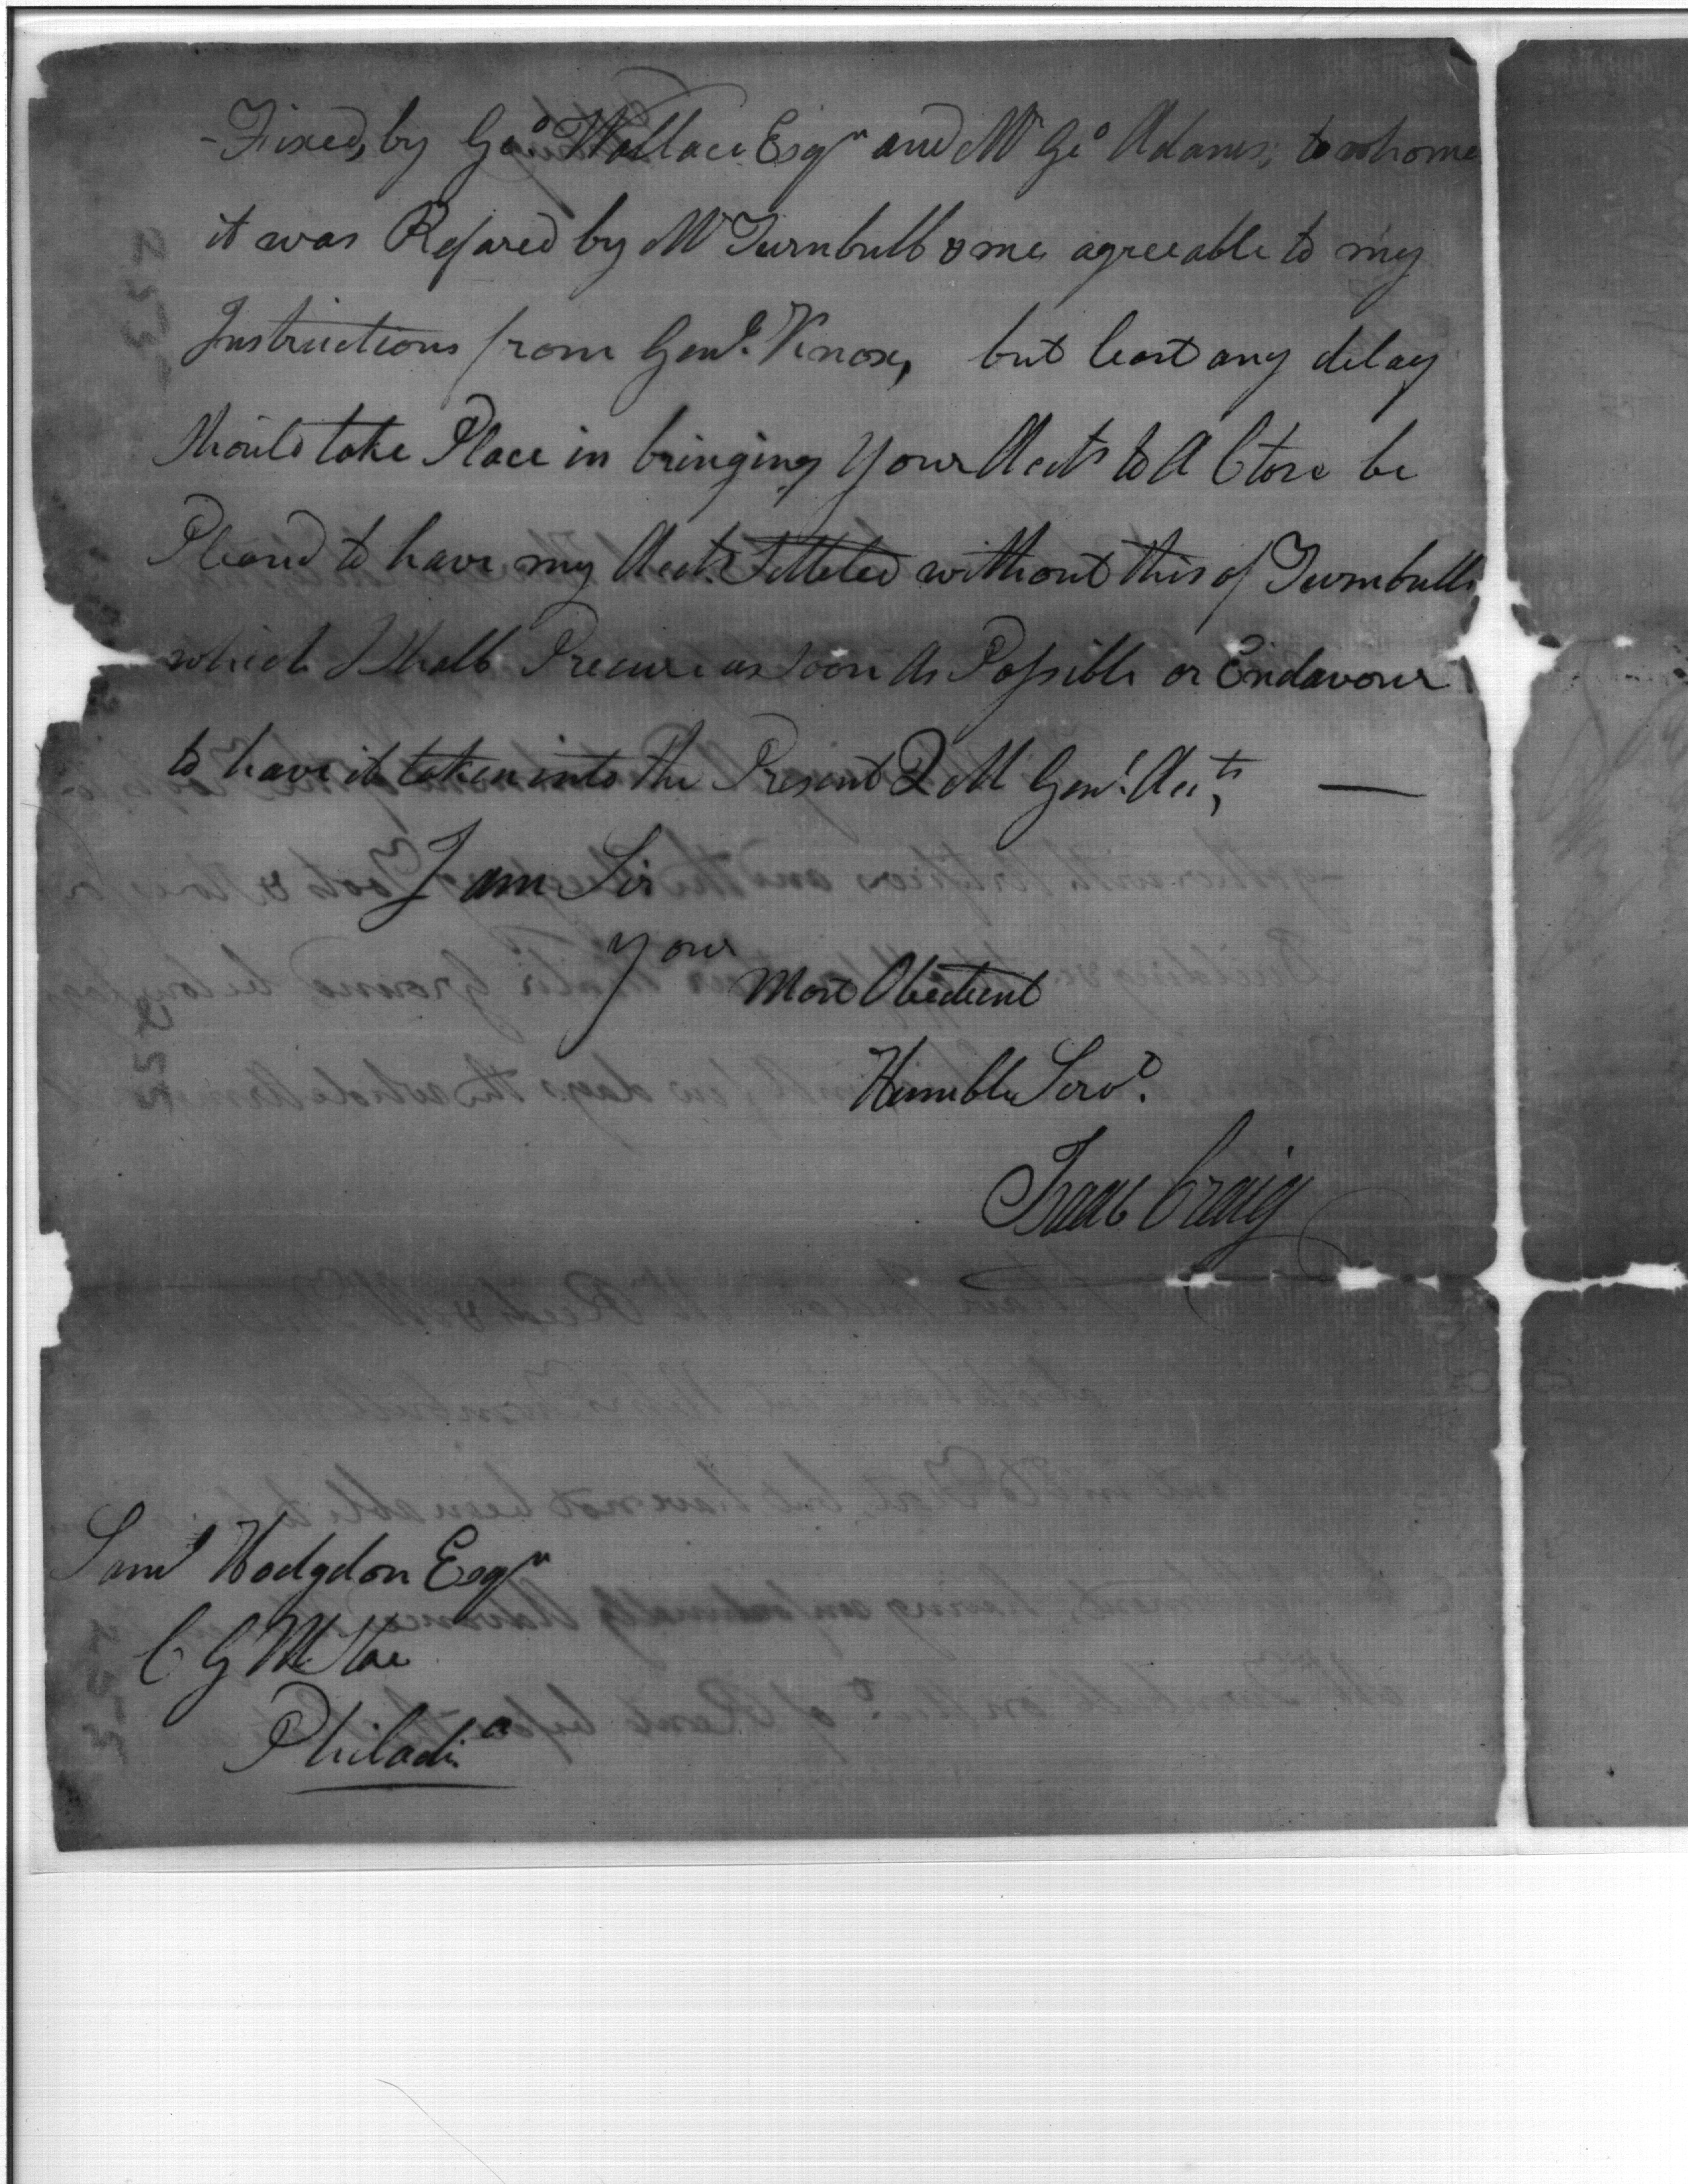 -Fixed, by Geo Wallace Esqr and Mr Geo Adams; to whome
it was Refared by Mr Turnbull & me agreeable to my
Instructions from Genl. Knox, but least any delay
should take Place in bringing your Accts to A Close be
Pleasd to have my Accts. Settled without this of Turnbulls
which I shall Precure as soon As Possible or Endavour
to have it taken into the Present Q M Genl. Accts, —
I am Sir
your
Most Obedient
Humble Servt.
Isaac Craig
Saml Hodgdon Esqr
C G M Stor
Philada